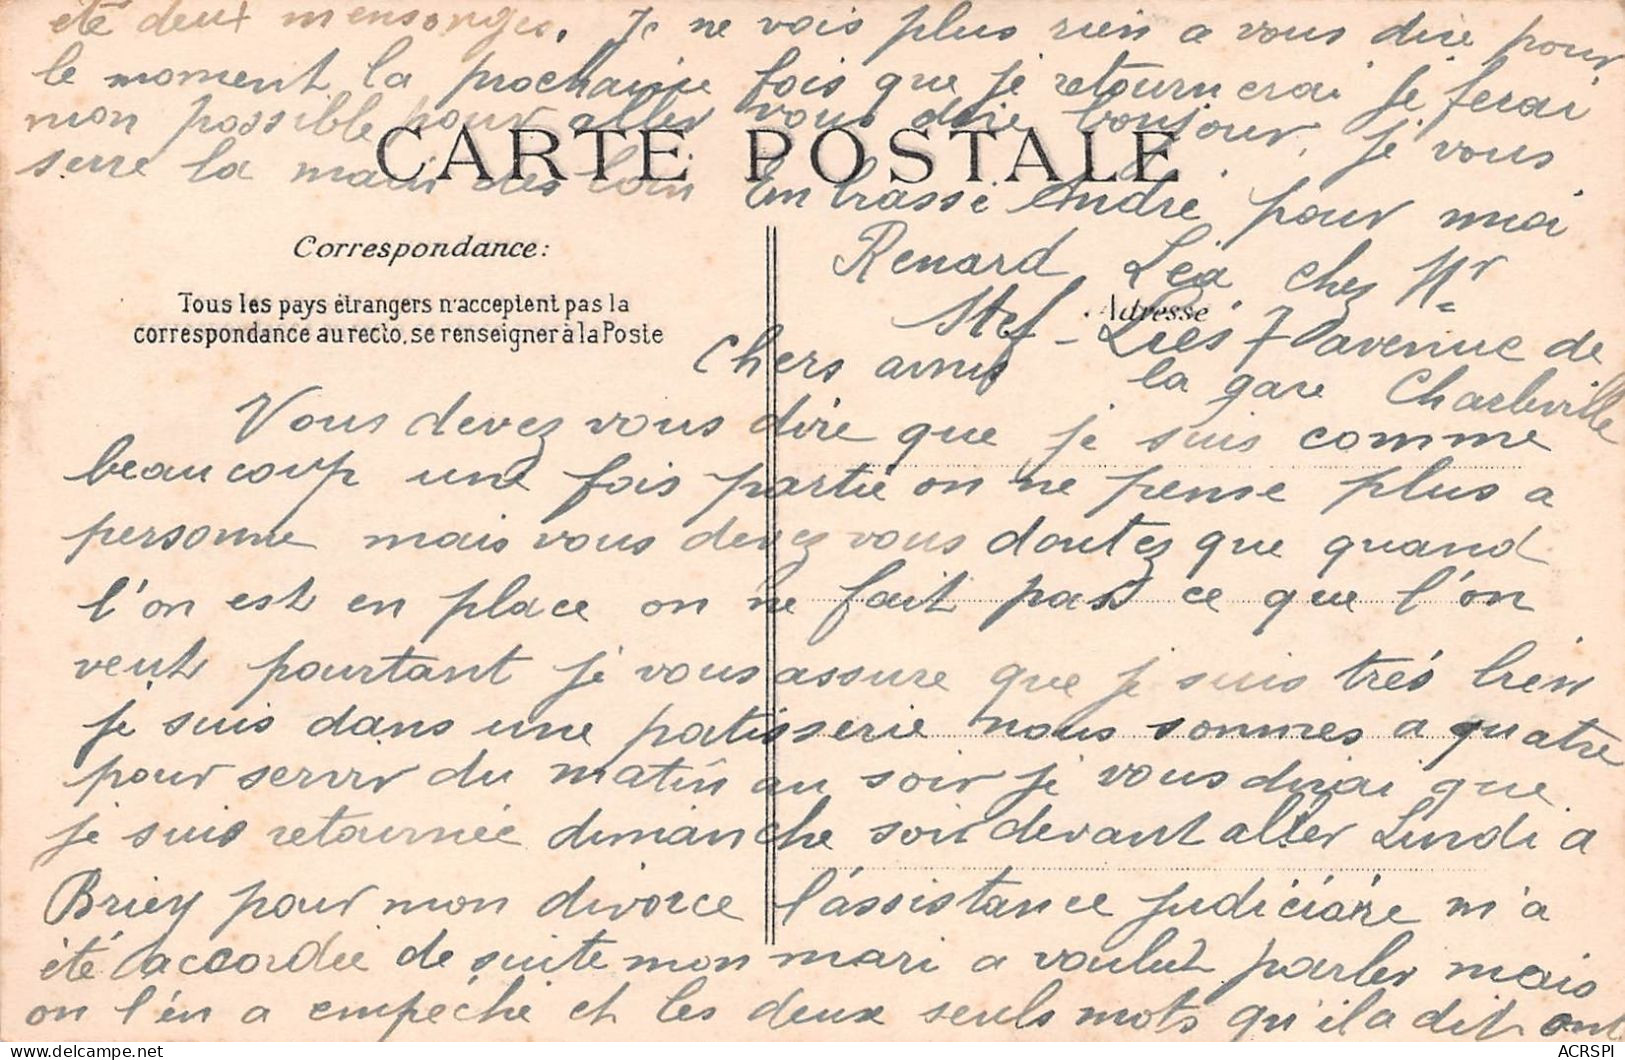 été deux mensonges. Je ne vois plus rien a vous dire pour
le moment la prochaine fois que je retournerai je ferai
mon possible pour aller vous dire bonjour, je vous
serre la main des loin Embrasse André pour moi
CARTE POSTALE
Correspondance:
Tous les pays étrangers n'acceptent pas la
correspondance au recto, se renseigner à la Poste
Adresse
Renard Léa chez Mr
Stef - 7 avenue de
la gare Charleville
Chers amis
Vous devez vous dire que je suis comme
beaucoup une fois partie on ne pense plus a
personne mais vous devez vous doutez que quand
l'on est en place on ne fait pas ce que l'on
veut pourtant je vous assure que je suis trés bien
je suis dans une patisserie nous sommes a quatre
pour servir du matin au soir je vous dirai que
je suis retournée dimanche soir devant aller Lundi a
Briey pour mon divorce l'assistance judiciaire m'a
été accordée de suite mon mari a voulut parler mais
on l'en a empéché et les deux seuls mots qu'il a dit ont
ACRSPI